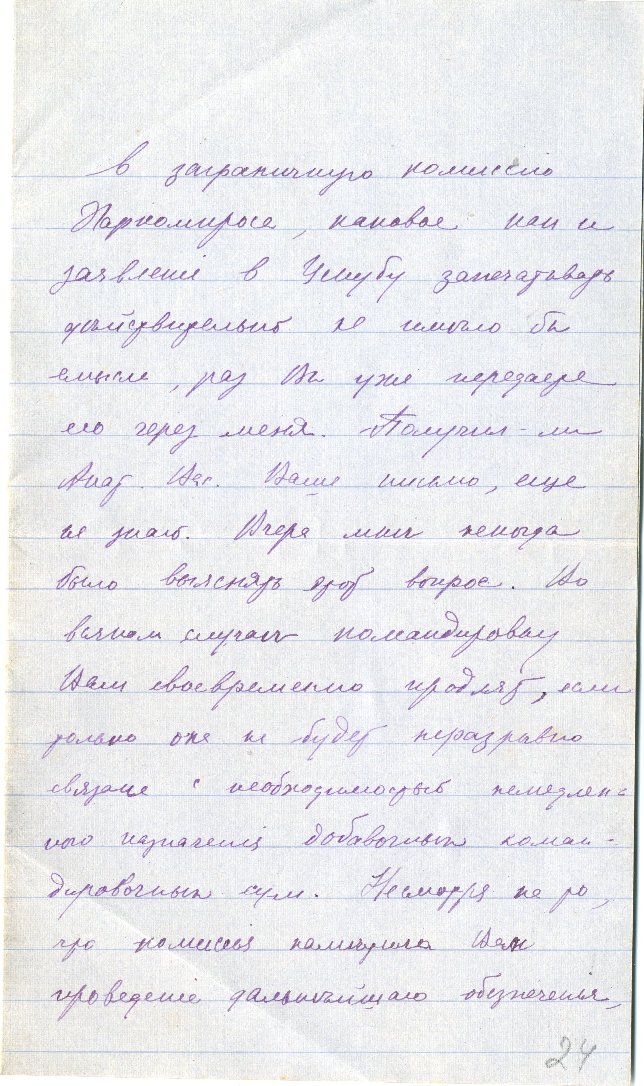 в заграничную комиссію
Наркомпроса, каковое как и
заявленіе в Цекубу запечатывать
действительно не имѣло бы
смысла, раз Вы уже передаете
его через меня. Получил-ли
Анат. Вас. Ваше письмо, еще
не знаю. Вчера мнѣ некогда
было выяснять этот вопрос. Во
всяком случаѣ командировку
Вам своевременно продлят, если
только она не будет неразрывно
связана с необходимостью немедлен-
ного назначенія добавочных коман-
дировочных сум. Несмотря на то,
что комиссія намѣтила Вам
проведеніе дальнѣйшаго обезпеченія,
24